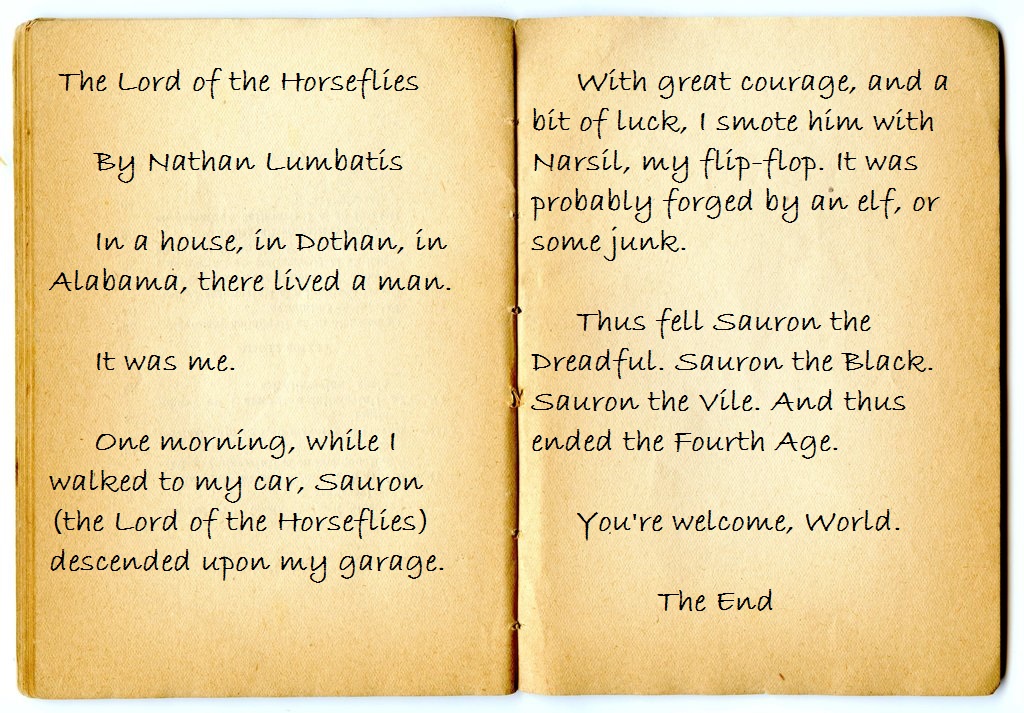 The Lord of the Horseflies
By Nathan Lumbatis
In a house, in Dothan, in
Alabama, there lived a man.
It was me.
One morning, while I
walked to my car, Sauron
(the Lord of the Horseflies)
descended upon my garage.
With great courage, and a
bit of luck, I smote him with
Narsil, my flip-flop. It was
probably forged by an elf, or
some junk.
Thus fell Sauron the
Dreadful. Sauron the Black.
Sauron the Vile. And thus
ended the Fourth Age.
You're welcome, World.
The End